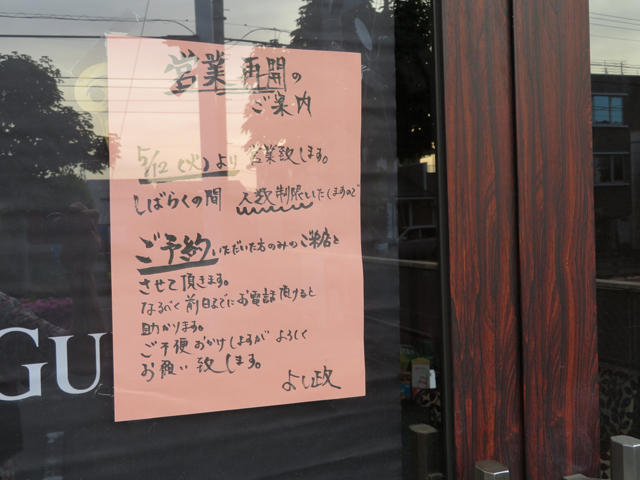 営業再開の
ご案内
5/12(火)より営業致します。
しばらくの間 人数制限いたしますので
ご予約いただいた方のみのご来店と
させて頂きます。
なるべく前日までにお電話頂けると
助かります。
ご不便おかけしますがよろしく
お願い致します。
よし政
GU